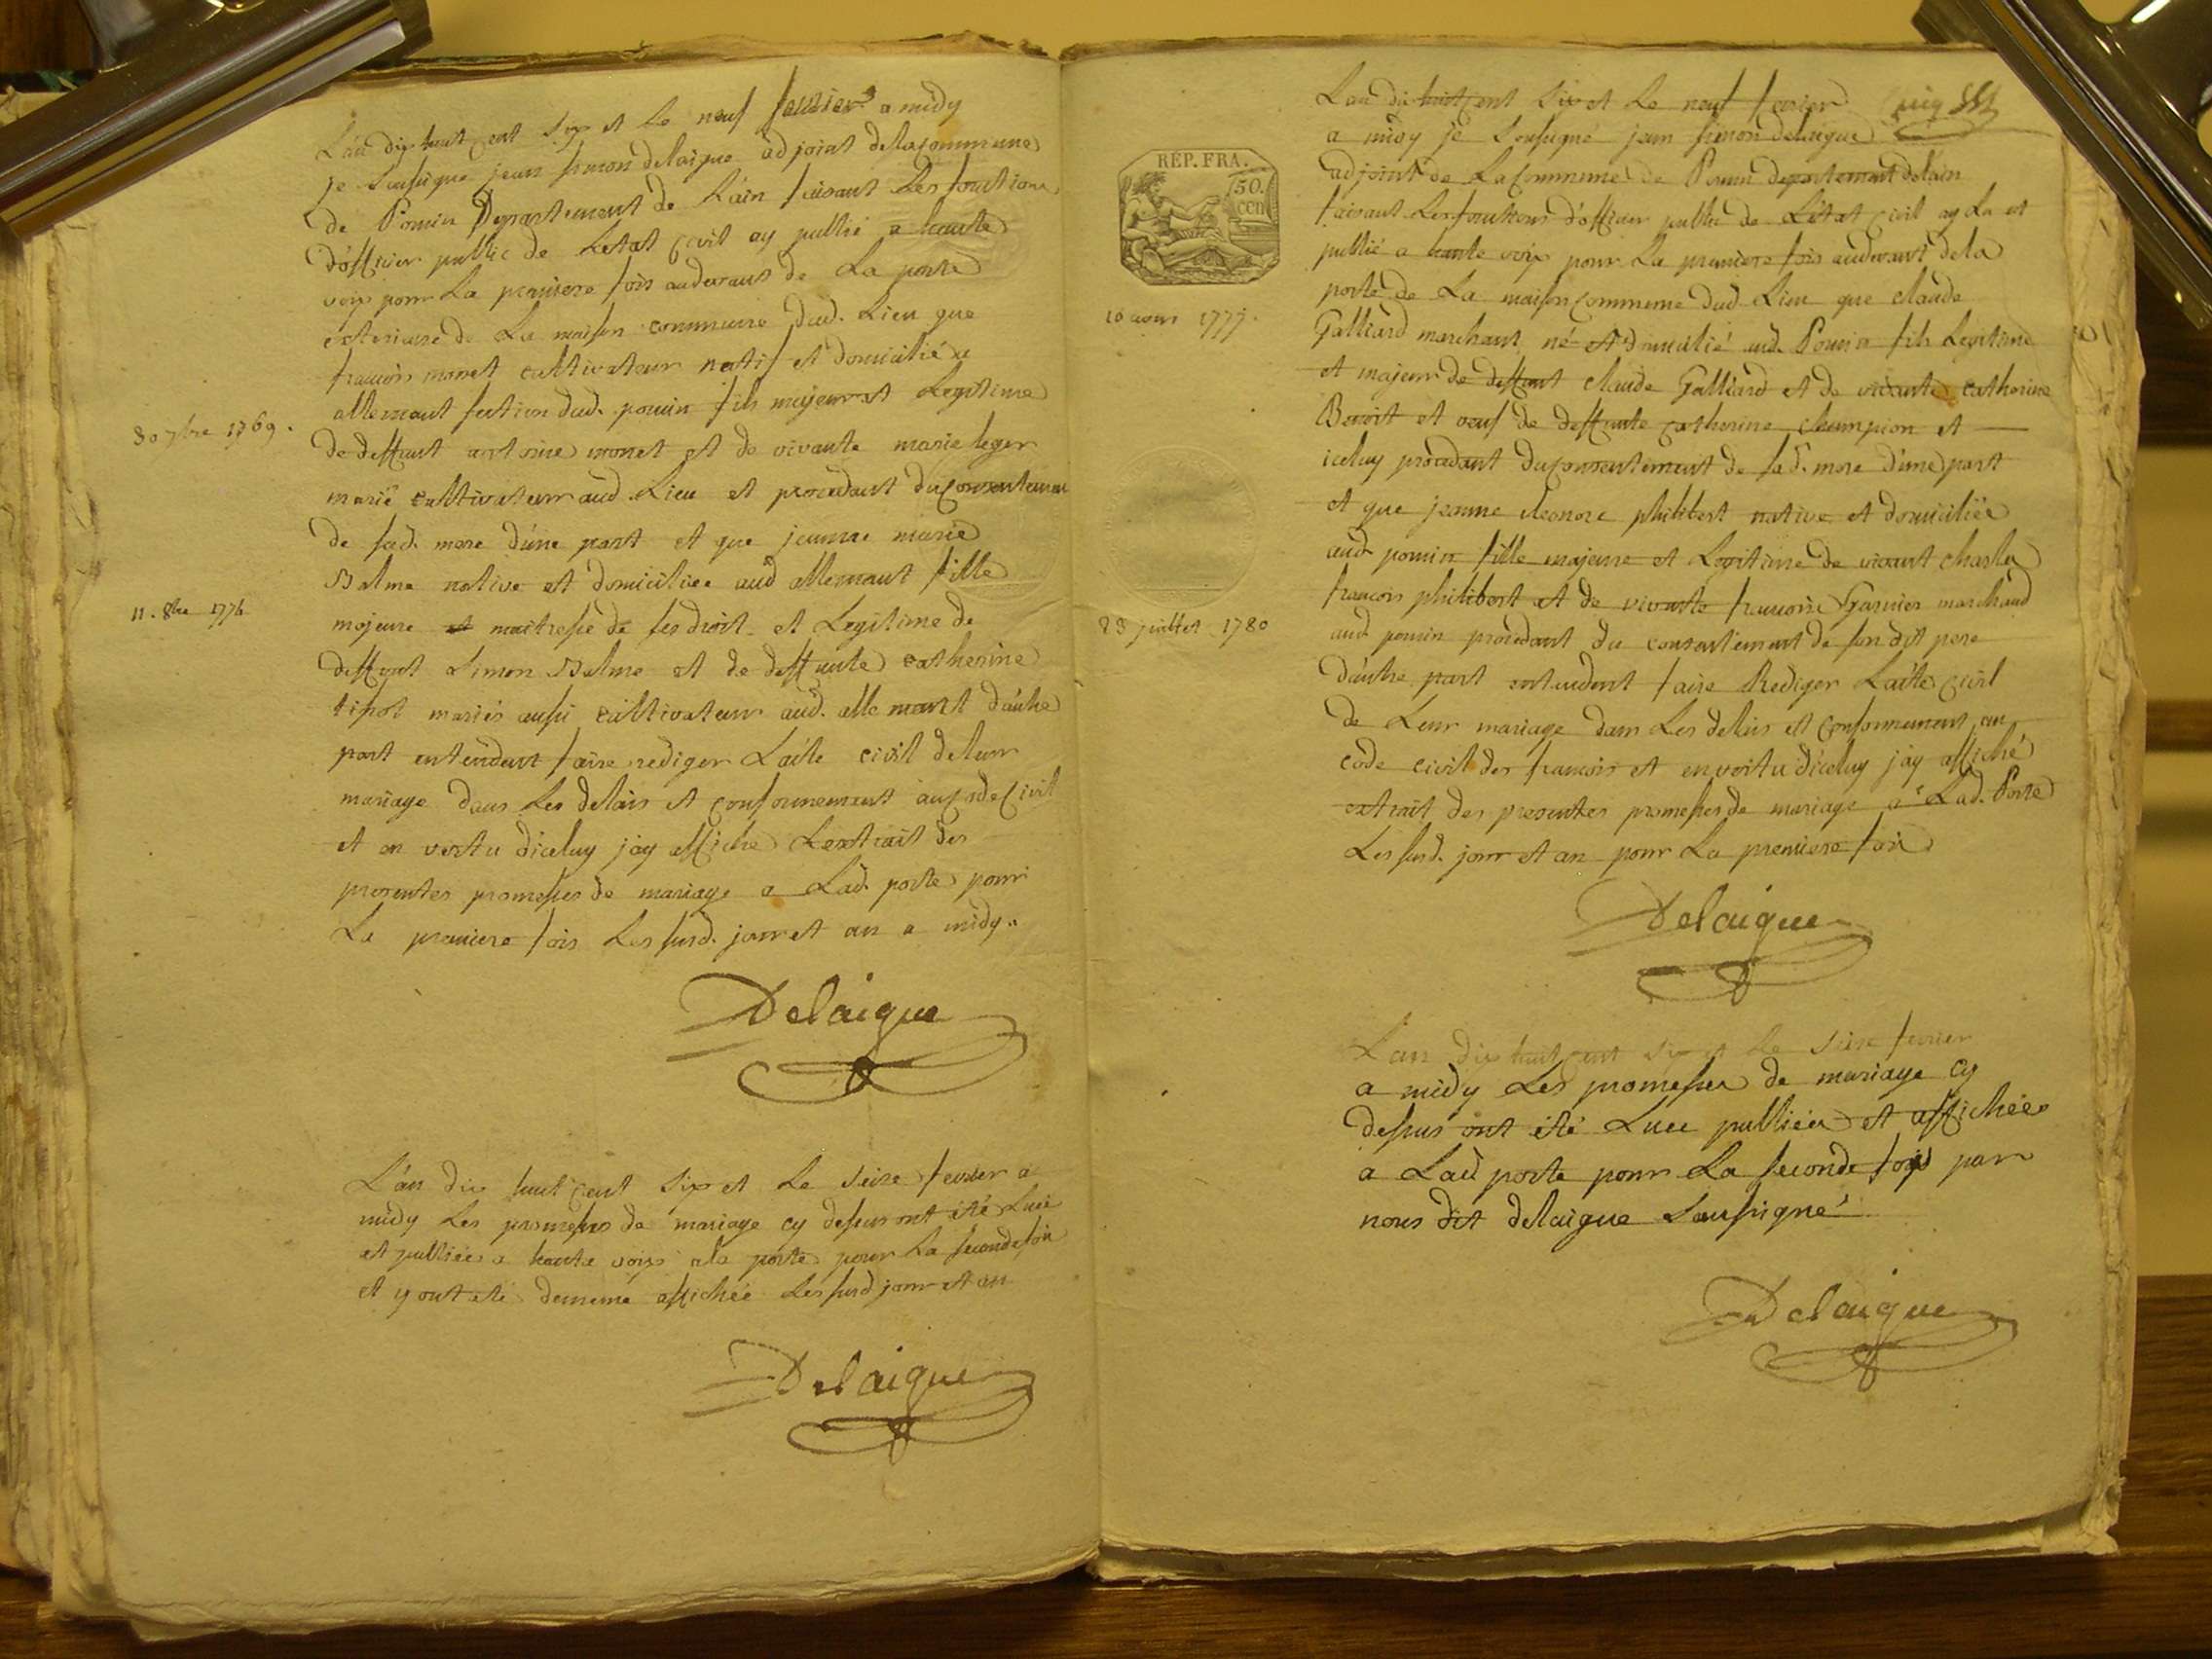 L'an dix huit cent six et le neuf feuvier a midy
je soussigne jean simon delaigue adjoint de la commune
de Poncin Departement de L'ain faisant Les fonctions
d'officier public de Letat civil ay publié a haute
voix pour La premiere fois audevant de La porte
exterieure de La maison commune dud. Lieu que
francois monet cultivateur natif et domicilié a
allemant section dud. poncin fils majeur et Legitime
30 7bre 1769.
de deffunt antoine monet et de vivante marie leger
marié cultivateur aud. Lieu et procedant du consentement
de sad. mere d'une part et que jeanne marie
Balme native et domiciliee aud allemant fille
11. 8bre 1776
majeure et maitresse de ses droit et Legitime de
deffunt Simon Balme et de deffunte catherine
mariés aussi cultivateur aud. allemant d'autre
part entendent faire rediger L'acte civil de leur
mariage dans Les delais et conformement au code civil
et en vertu d'iceluy j'ay affiché L'extrait des
presentes promesses de mariage a Lad. porte pour
La premiere fois Les susd. jour et an a midy..
Delaigue
L'an dix huit cent six et Le seize fevrier a
midy Les promesses de mariage cy dessus ont été Lue
et publiées a haute voix a la porte pour La seconde fois
et y ont ete dememe affichée Les susd jour et an
Delaigue
L'an dix huit cent six et Le neuf fevrier
a midy je soussigné jean simon delaigue
adjoint de La commune de Poncin departement de L'ain
RÉP. FRA.
50.
cen
faisant Les fonctions d'officier public de L'état civil ay Lu et
publié a haute voix pour La premiere fois audevant de la
porte de La maison commune dud. Lieu que claude
16 aoust 1777.
Galliard marchant, né et domicilié aud. Poncin fils Legitime
et majeur de deffunt claude Galliard et de vivante catherine
Benoit et veuf de deffunte catherine champion et
iceluy procedant du consentement de sad. mere d'une part
et que jeanne eleonore philibert native et domiciliée
aud. poncin fille majeure et Legitime de vivant charle
francois philibert et de vivante francoise Garnier marchand
23 juillet 1780
aud. poncin procedant du consentement de son dit pere
d'autre part entendent faire Rediger L'acte civil
de Leur mariage dans Les delais et conformement au
code civil des francois et en vertu d'iceluy j'ay affiché
extrait des presentes promesses de mariage a Lad. Porte
Les susd. jour et an pour La premiere fois
Delaigue
L'an dix huit cent six et Le seize fevrier
a midy Les promesses de mariage cy
dessus ont été Lues publiées et affichées
a Lad porte pour La seconde fois par
nous dit delaigue soussigné
Delaigue